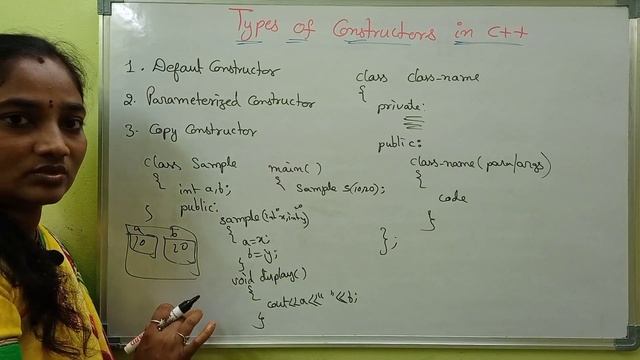 Types of Constructors in C++
1. Defaut Constructor
2. Parameterized Constructor
3. Copy Constructor
class Sample
{
int a,b;
public:
sample(int x, int y)
{
a=x;
b=y;
}
void display()
{
cout<<a<<" "<<b;
}
}
a b
10 20
main()
{ Sample s(10,20);
class class-name
{
private:
public:
class-name(para/args)
{
code
}
};